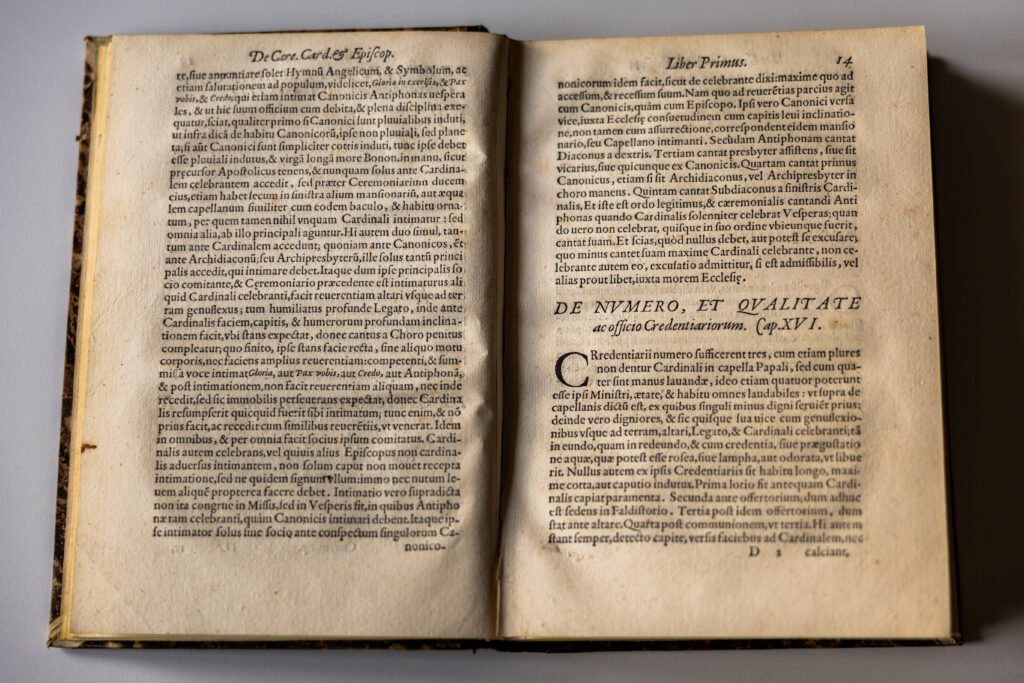 De Cere. Card. & Episcop.
re, siue annuntiare solet Hymnũ Angelicum, & Symbolum, ac
etiam salutationem ad populum, videlicet, Gloria in excelsis, & Pax
vobis, & Credo; qui etiam intimat Canonicis Antiphonas vespera
les, & ut hic suum officium cum debita, & plena disciplina exe-
quatur, sciat, qualiter primo si Canonici sunt pluuialibus induti,
ut infra dicã de habitu Canonicorũ, ipse non pluuiali, sed plane
ta; si aũt Canonici sunt simpliciter cottis induti, tunc ipse debet
esse pluuiali indutus, & virgã longã more Bonon. in manu, sicut
precursor Apostolicus tenens, & nunquam solus ante Cardina-
lem celebrantem accedit, sed præter Ceremoniarium ducem
eius, etiam habet secum in sinistra alium mansionariũ, aut æqua
lem capellanum similiter cum eodem baculo, & habitu orna-
tum, per quem tamen nihil vnquam Cardinali intimatur: sed
omnia alia, ab illo principali aguntur. Hi autem duo simul, tan-
tum ante Cardinalem accedunt, quoniam ante Canonicos, &
ante Archidiaconũ, seu Archipresbyterũ, ille solus tantũ princi
palis accedit, qui intimare debet. Itaque dum ipse principalis so
cio comitante, & Ceremoniario præcedente est intimaturus ali
quid Cardinali celebranti, facit reuerentiam altari vsque ad ter
ram genuflexus; tum humiliatus profunde Legato, inde ante
Cardinalis faciem, capitis, & humerorum profundam inclina-
tionem facit, vbi stans expectat, donec cantus a Choro penitus
compleatur; quo finito, ipse stans facie recta, sine aliquo motu
corporis, nec faciens amplius reuerentiam: competenti, & sum-
missa voce intimat Gloria, aut Pax vobis, aut Credo, aut Antiphonã,
& post intimationem, non facit reuerentiam aliquam, nec inde
recedit, sed sic immobilis perseuerans expectat, donec Cardina
lis resumpserit quicquid fuerit sibi intimatum; tunc enim, & nõ
prius facit, ac recedit cum similibus reuerẽtiis, vt venerat. Idem
in omnibus, & per omnia facit socius ipsum comitatus. Cardi-
nalis autem celebrans, vel quiuis alius Episcopus non cardina-
lis aduersus intimantem, non solum caput non mouet recepta
intimatione, sed ne quidem signum vllum: immo nec nutum le-
uem aliquẽ propterea facere debet. Intimatio vero supradicta
non ita congrue in Missis, sed in Vesperis fit, in quibus Antipho
næ tam celebranti, quàm Canonicis intimari debent. Itaque ip-
se intimator solus sine socio ante conspectum singulorum Ca-
nonico-
Liber Primus. 14
nonicorum idem facit, sicut de celebrante dixi: maxime quo ad
accessum, & recessum suum. Nam quo ad reuerẽtias parcius agit
cum Canonicis, quàm cum Episcopo. Ipsi vero Canonici versa
vice, iuxta Ecclesię consuetudinem cum capitis leui inclinatio-
ne, non tamen cum assurrectione, correspondent eidem mansio
nario, seu Capellano intimanti. Secundam Antiphonam cantat
Diaconus a dextris. Tertiam cantat presbyter assistens, siue sit
vicarius, siue quicunque ex Canonicis. Quartam cantat primus
Canonicus, etiam si sit Archidiaconus, vel Archipresbyter in
choro manens. Quintam cantat Subdiaconus a sinistris Cardi-
nalis, Et iste est ordo legitimus, & cæremonialis cantandi Anti
phonas quando Cardinalis solenniter celebrat Vesperas; quan
do uero non celebrat, quisque in suo ordine vbicunque fuerit,
cantat suam. Et scias, quòd nullus debet, aut potest se excusare;
quo minus cantet suam maxime Cardinali celebrante, non ce-
lebrante autem eo, excusatio admittitur, si est admissibilis, vel
alias prout libet, iuxta morem Ecclesię.
DE NVMERO, ET QVALITATE
ac officio Credentiariorum. Cap. XVI.
CRredentiarii numero sufficerent tres, cum etiam plures
non dentur Cardinali in capella Papali, sed cum qua-
ter sint manus lauandæ, ideo etiam quatuor poterunt
esse ipsi Ministri, ætate, & habitu omnes laudabiles: vt supra de
capellanis dictũ est, ex quibus singuli minus digni seruiẽt prius;
deinde vero digniores, & sic quisque sua uice cum genuflexio-
nibus vsque ad terram, altari, Legato, & Cardinali celebranti; tã
in eundo, quam in redeundo, & cum credentia, siue prægustatio
ne aquæ, quæ potest esse rosea, siue lampha, aut odorata, vt libue
rit. Nullus autem ex ipsis Credentiariis sit habitu longo, maxi-
me cotta, aut caputio indutus. Prima lotio fit antequam Cardi-
nalis capiat paramenta. Secunda ante offertorium, dum adhuc
est sedens in Faldistorio. Tertia post idem offertorium, dum
stat ante altare. Quarta post communionem, vt tertia. Hi autem
stant semper, detecto capite, versis faciebus ad Cardinalem, nec
D 2 calciant,